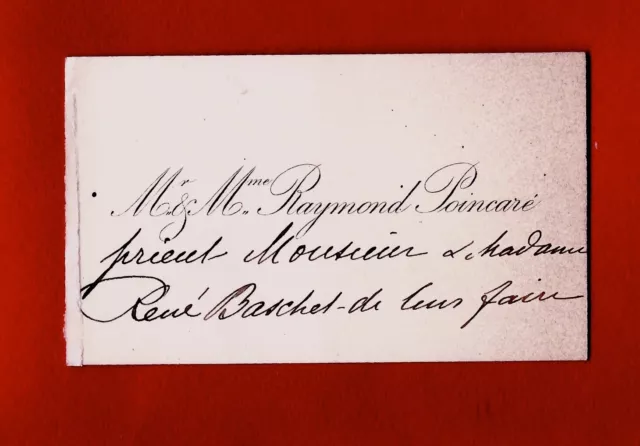 Mr. & Mme. Raymond Poincaré
prient Monsieur & Madame
René Baschet - de leur faire